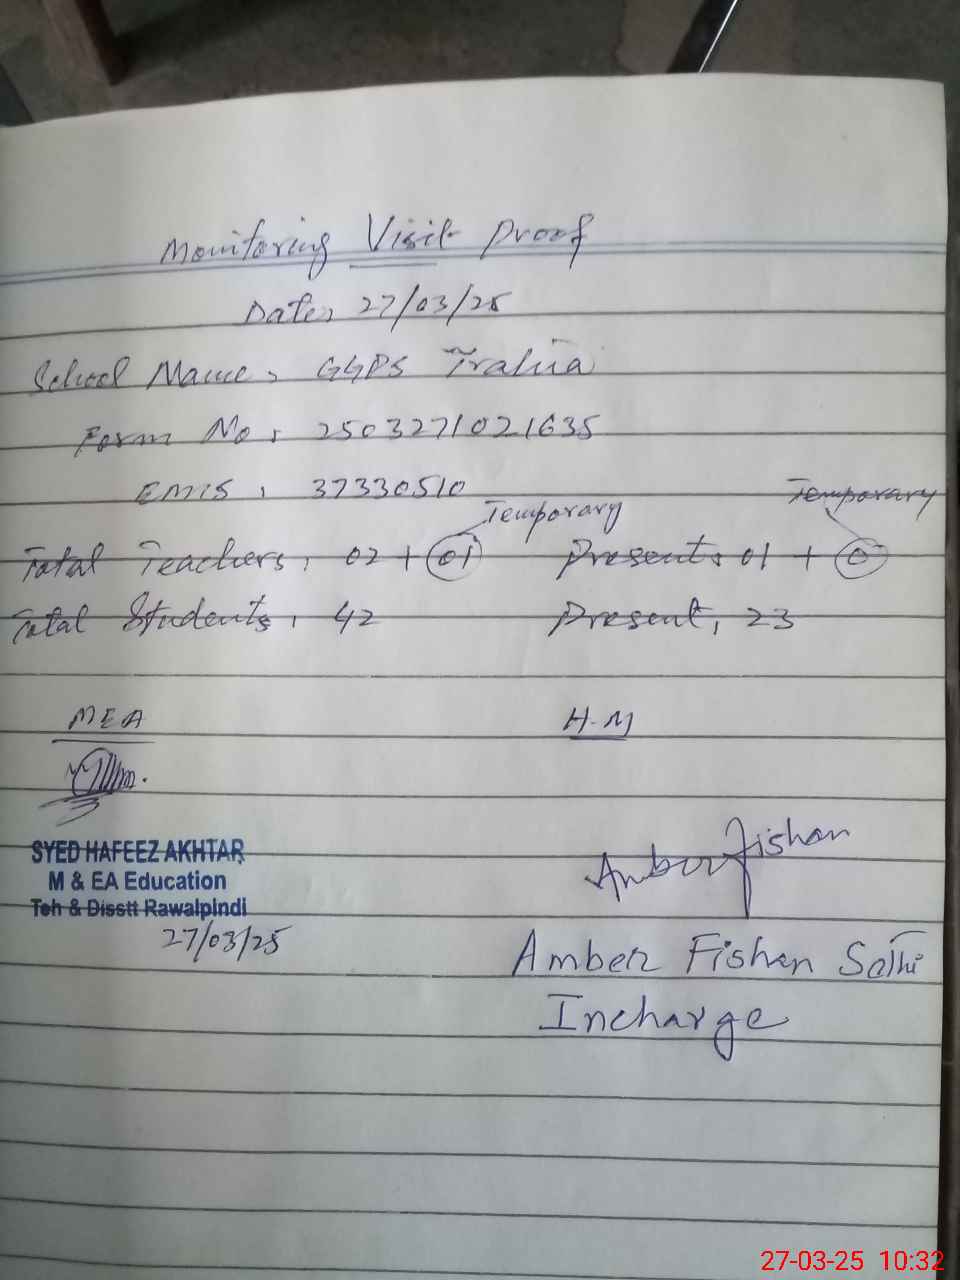 Monitoring Visit Proof
Date, 27/03/25
School Name, GGPS Trahia
Form No, 2503271021635
EMIS, 37330510
Temporary Temporary
Total Teachers, 02 + 01 Present, 01 + 0
Total Students, 42 Present, 23
MEA H.M
SYED HAFEEZ AKHTAR
M & EA Education
Teh & Disstt Rawalpindi
27/03/25
Amber Fishan
Amber Fishan Sathi
Incharge
27-03-25 10:32